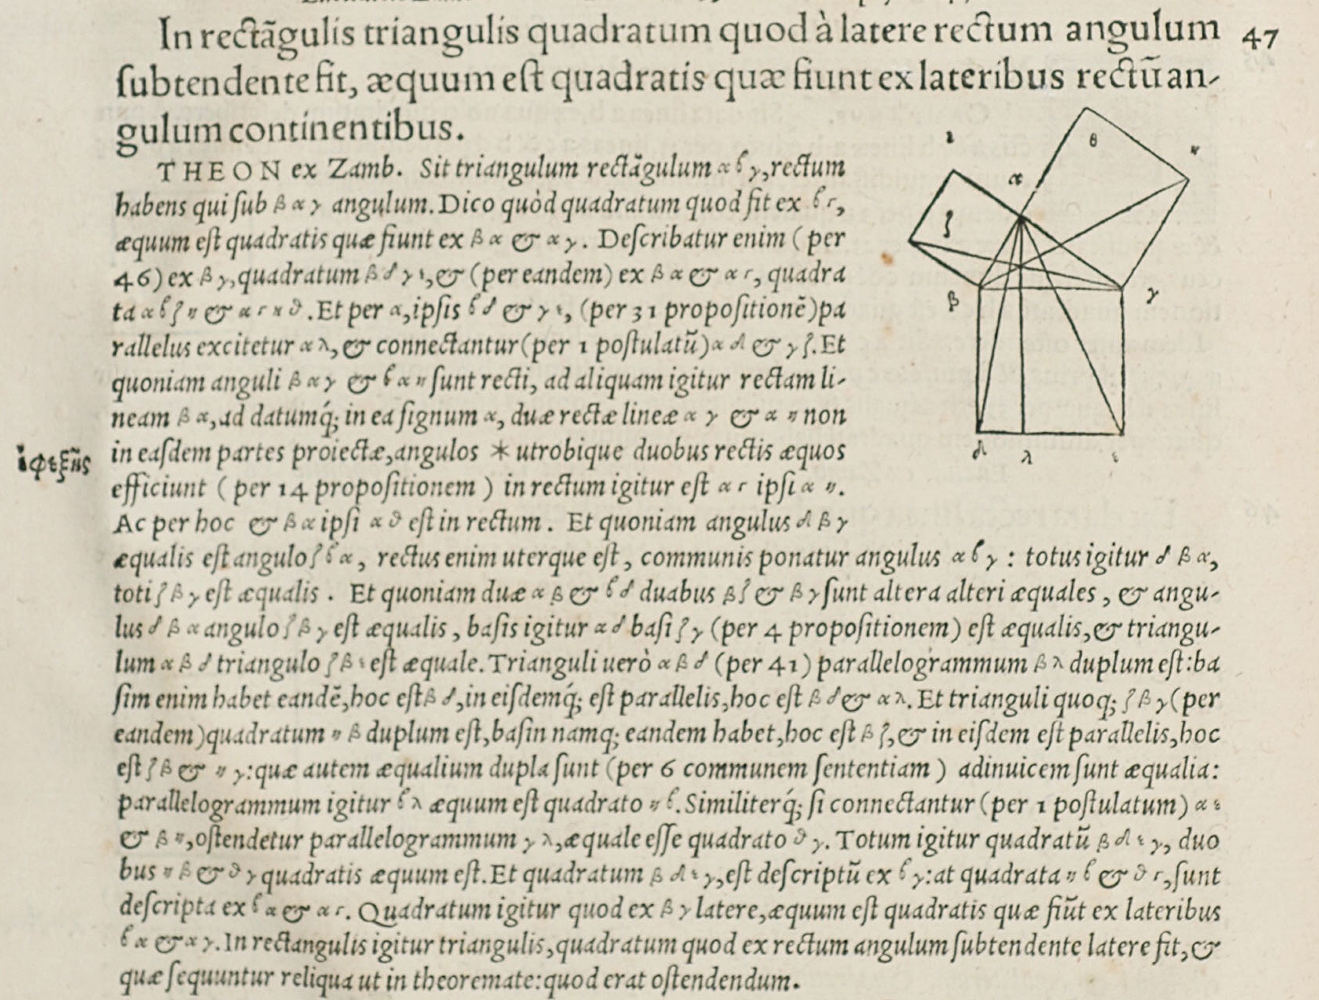 In rectãgulis triangulis quadratum quod à latere rectum angulum 47
ſubtendente fit, æquum eſt quadratis quæ fiunt ex lateribus rectũ an-
gulum continentibus.
THEON ex Zamb. Sit triangulum rectãgulum α ϐ γ, rectum
habens qui ſub β α γ angulum. Dico quòd quadratum quod fit ex ϐ γ,
æquum eſt quadratis quæ fiunt ex β α & α γ. Deſcribatur enim (per
46) ex β γ, quadratum β δ γ ε, & (per eandem) ex β α & α γ, quadra
ta α ϐ ζ η & α γ κ θ. Et per α, ipſis ϐ δ & γ ε, (per 31 propoſitionẽ) pa
rallelus excitetur α λ, & connectantur (per 1 poſtulatũ) α δ & γ ζ. Et
quoniam anguli β α γ & ϐ α η ſunt recti, ad aliquam igitur rectam li-
neam β α, ad datumq́; in ea ſignum α, duæ rectæ lineæ α γ & α η non
ἐφεξῆς in eaſdem partes proiectæ, angulos * utrobique duobus rectis æquos
efficiunt (per 14 propoſitionem) in rectum igitur eſt α γ ipſi α η.
Ac per hoc & β α ipſi α θ eſt in rectum. Et quoniam angulus δ β γ
æqualis eſt angulo ζ ϐ α, rectus enim uterque eſt, communis ponatur angulus α ϐ γ : totus igitur δ β α,
toti ζ β γ eſt æqualis. Et quoniam duæ α β & ϐ δ duabus β ζ & β γ ſunt altera alteri æquales, & angu-
lus δ β α angulo ζ β γ eſt æqualis, baſis igitur α δ baſi ζ γ (per 4 propoſitionem) eſt æqualis, & triangu-
lum α β δ triangulo ζ β ε eſt æquale. Trianguli uerò α β δ (per 41) parallelogrammum β λ duplum eſt: ba
ſim enim habet eandẽ, hoc eſt β δ, in eiſdemq́; eſt parallelis, hoc eſt β δ & α λ. Et trianguli quoq; ζ β γ (per
eandem) quadratum η β duplum eſt, baſin namq; eandem habet, hoc eſt β ζ, & in eiſdem eſt parallelis, hoc
eſt ζ β & η γ: quæ autem æqualium dupla ſunt (per 6 communem ſententiam) adinuicem ſunt æqualia:
parallelogrammum igitur ϐ λ æquum eſt quadrato η ϐ. Similiterq́; ſi connectantur (per 1 poſtulatum) α ε
& β κ, oſtendetur parallelogrammum γ λ, æquale eſſe quadrato θ γ. Totum igitur quadratũ β δ ε γ, duo
bus η β & θ γ quadratis æquum eſt. Et quadratum β δ ε γ, eſt deſcriptũ ex ϐ γ: at quadrata η ϐ & θ γ, ſunt
deſcripta ex ϐ α & α γ. Quadratum igitur quod ex β γ latere, æquum eſt quadratis quæ fiũt ex lateribus
ϐ α & α γ. In rectangulis igitur triangulis, quadratum quod ex rectum angulum ſubtendente latere fit, &
quæ ſequuntur reliqua ut in theoremate: quod erat oſtendendum.
θ
α
ζ
β γ
δ λ ε